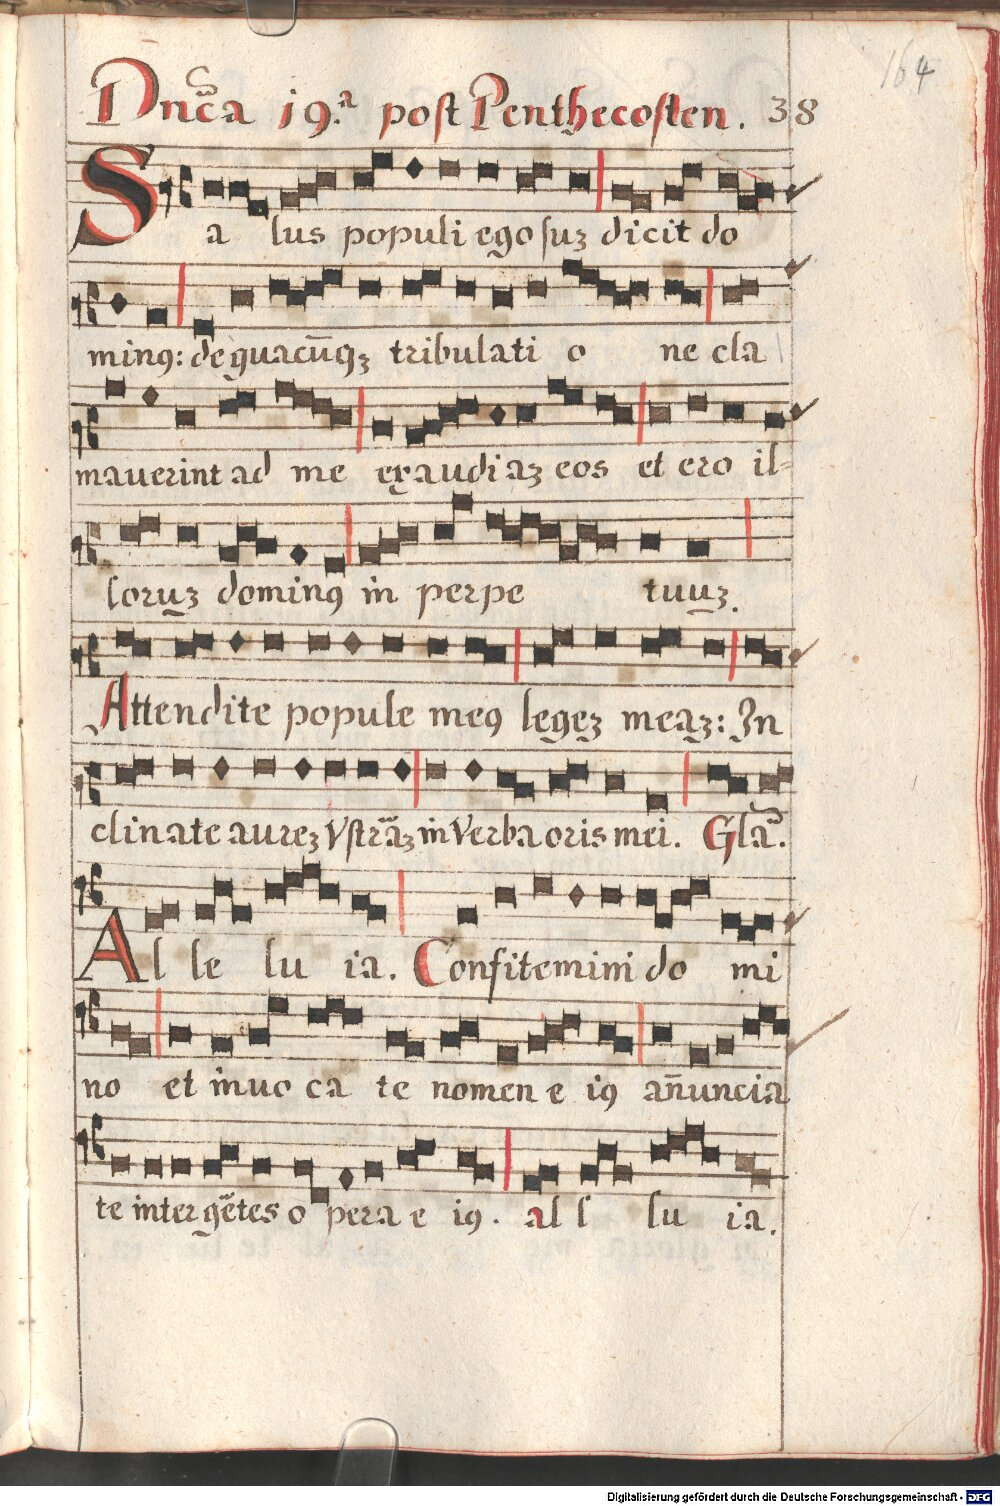 164
Dnĉa 19.ª post Penthecosten. 38
Sa lus populi ego suʒ dicit do
minꝰ: de quacūqʒ tribulati o ne cla
maverint ad me exaudiaʒ eos et ero il=
loruʒ dominꝰ in perpe tuuʒ.
Attendite popule meꝰ legeʒ meaʒ: In
clinate aureʒ vstrāʒ in verba oris mei. Glã.
Al le lu ia. Confitemini do mi
no et invo ca te nomen e iꝰ añuncia
te inter gētes o pera e iꝰ. al l lu ia.
Digitalisierung gefördert durch die Deutsche Forschungsgemeinschaft - DFG